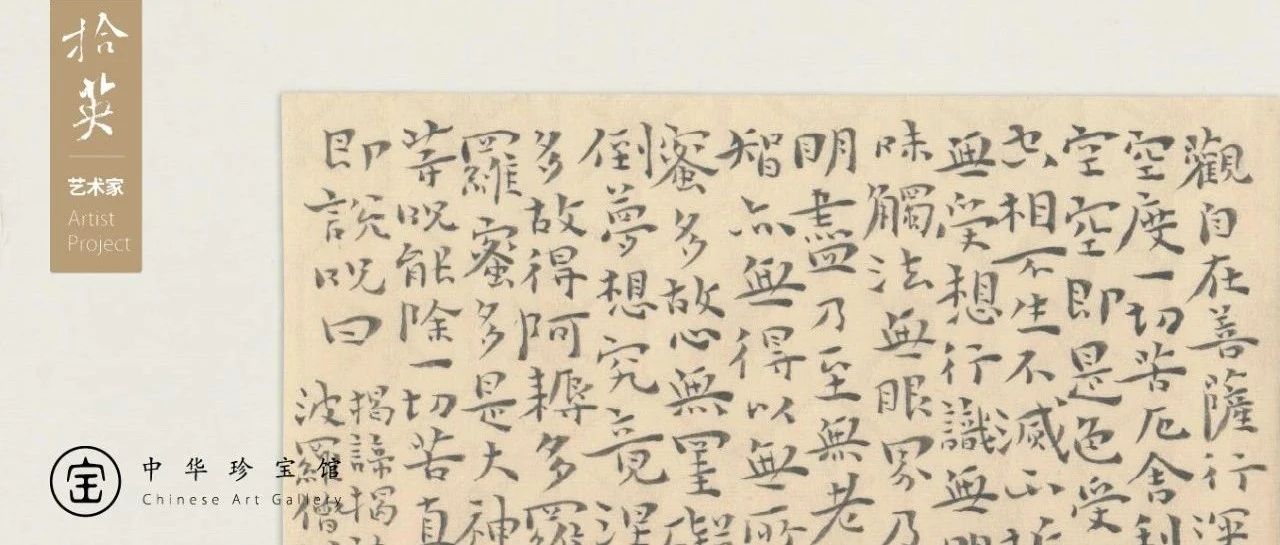 拾英
艺术家
Artist
Project
觀自在菩薩行深
空度一切苦厄舍利
空空即是色受
忘相不生不滅不垢
無受想行識無
味觸法無眼界乃
明盡乃至無老
智亦無得以無所
蜜多故心無罣礙
倒夢想究竟涅
多故得阿耨多羅
羅蜜多是大神
等呪能除一切苦真
即說呪曰
揭諦揭
波羅僧
中华珍宝馆
Chinese Art Gallery